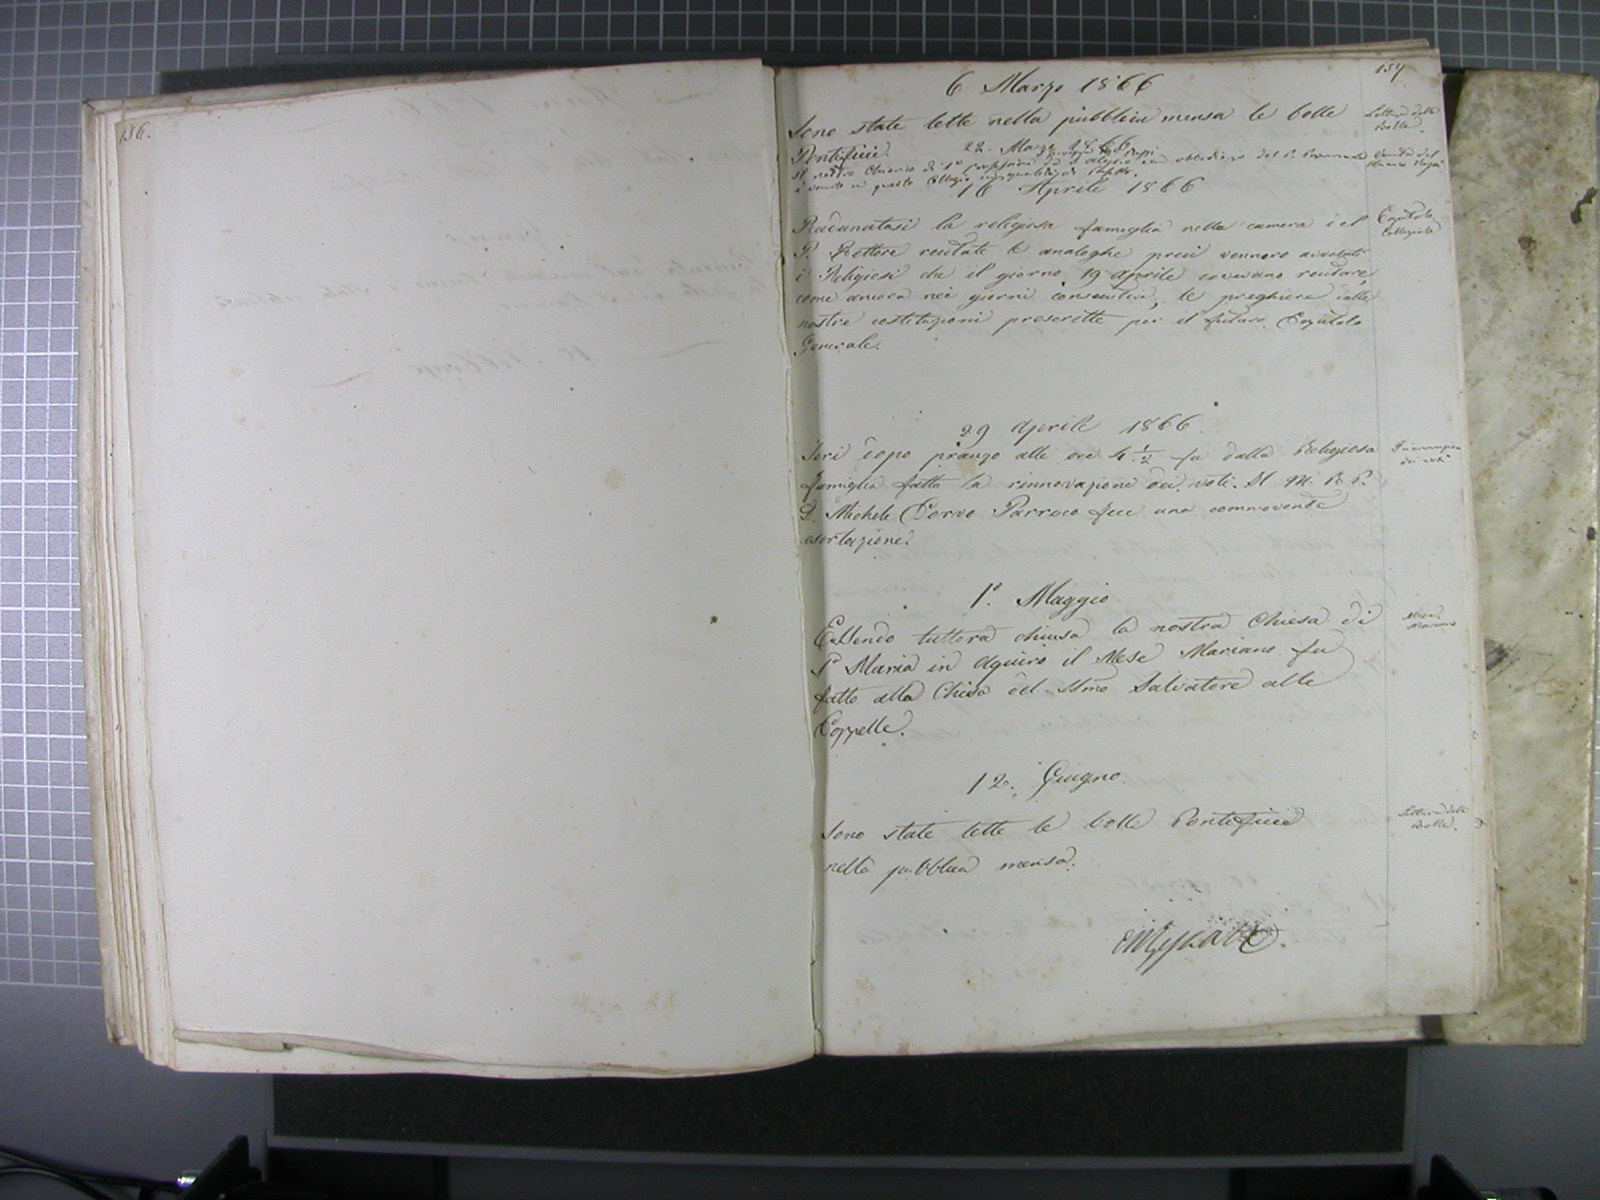 136.
137
6 Marzo 1866
Sono state lette nella pubblica mensa le bolle
Pontificie.
Lettura delle
Bolle.
22. Marzo 1866
Il nostro Chierico
è venuto in questo Collegio in qualità di Prefetto.
Venuta del
16 Aprile 1866
Radunatasi la religiosa famiglia nella camera del
P. Rettore recitate le analoghe preci vennero avvertiti
i Religiosi che il giorno 19 Aprile dovevano recitare,
come ancora nei giorni consecutivi, le preghiere dalle
nostre costituzioni prescritte per il futuro Capitolo
Generale.
Capitolo
Collegiale
29 Aprile 1866.
Ieri dopo pranzo alle ore 4 1/2 fu dalla Religiosa
famiglia fatta la rinnovazione dei voti. Il M. R. P.
D. Michele Corvo Parroco fece una commovente
esortazione.
Rinnovazione
dei voti
1º. Maggio
Essendo tuttora chiusa la nostra Chiesa di
Sª Maria in Aquiro il Mese Mariano fu
fatto alla Chiesa del SSmo Salvatore alle
Coppelle.
Mese
Mariano
12. Giugno.
Sono state lette le bolle Pontificie
nella pubblica mensa.
Lettura delle
Bolle.